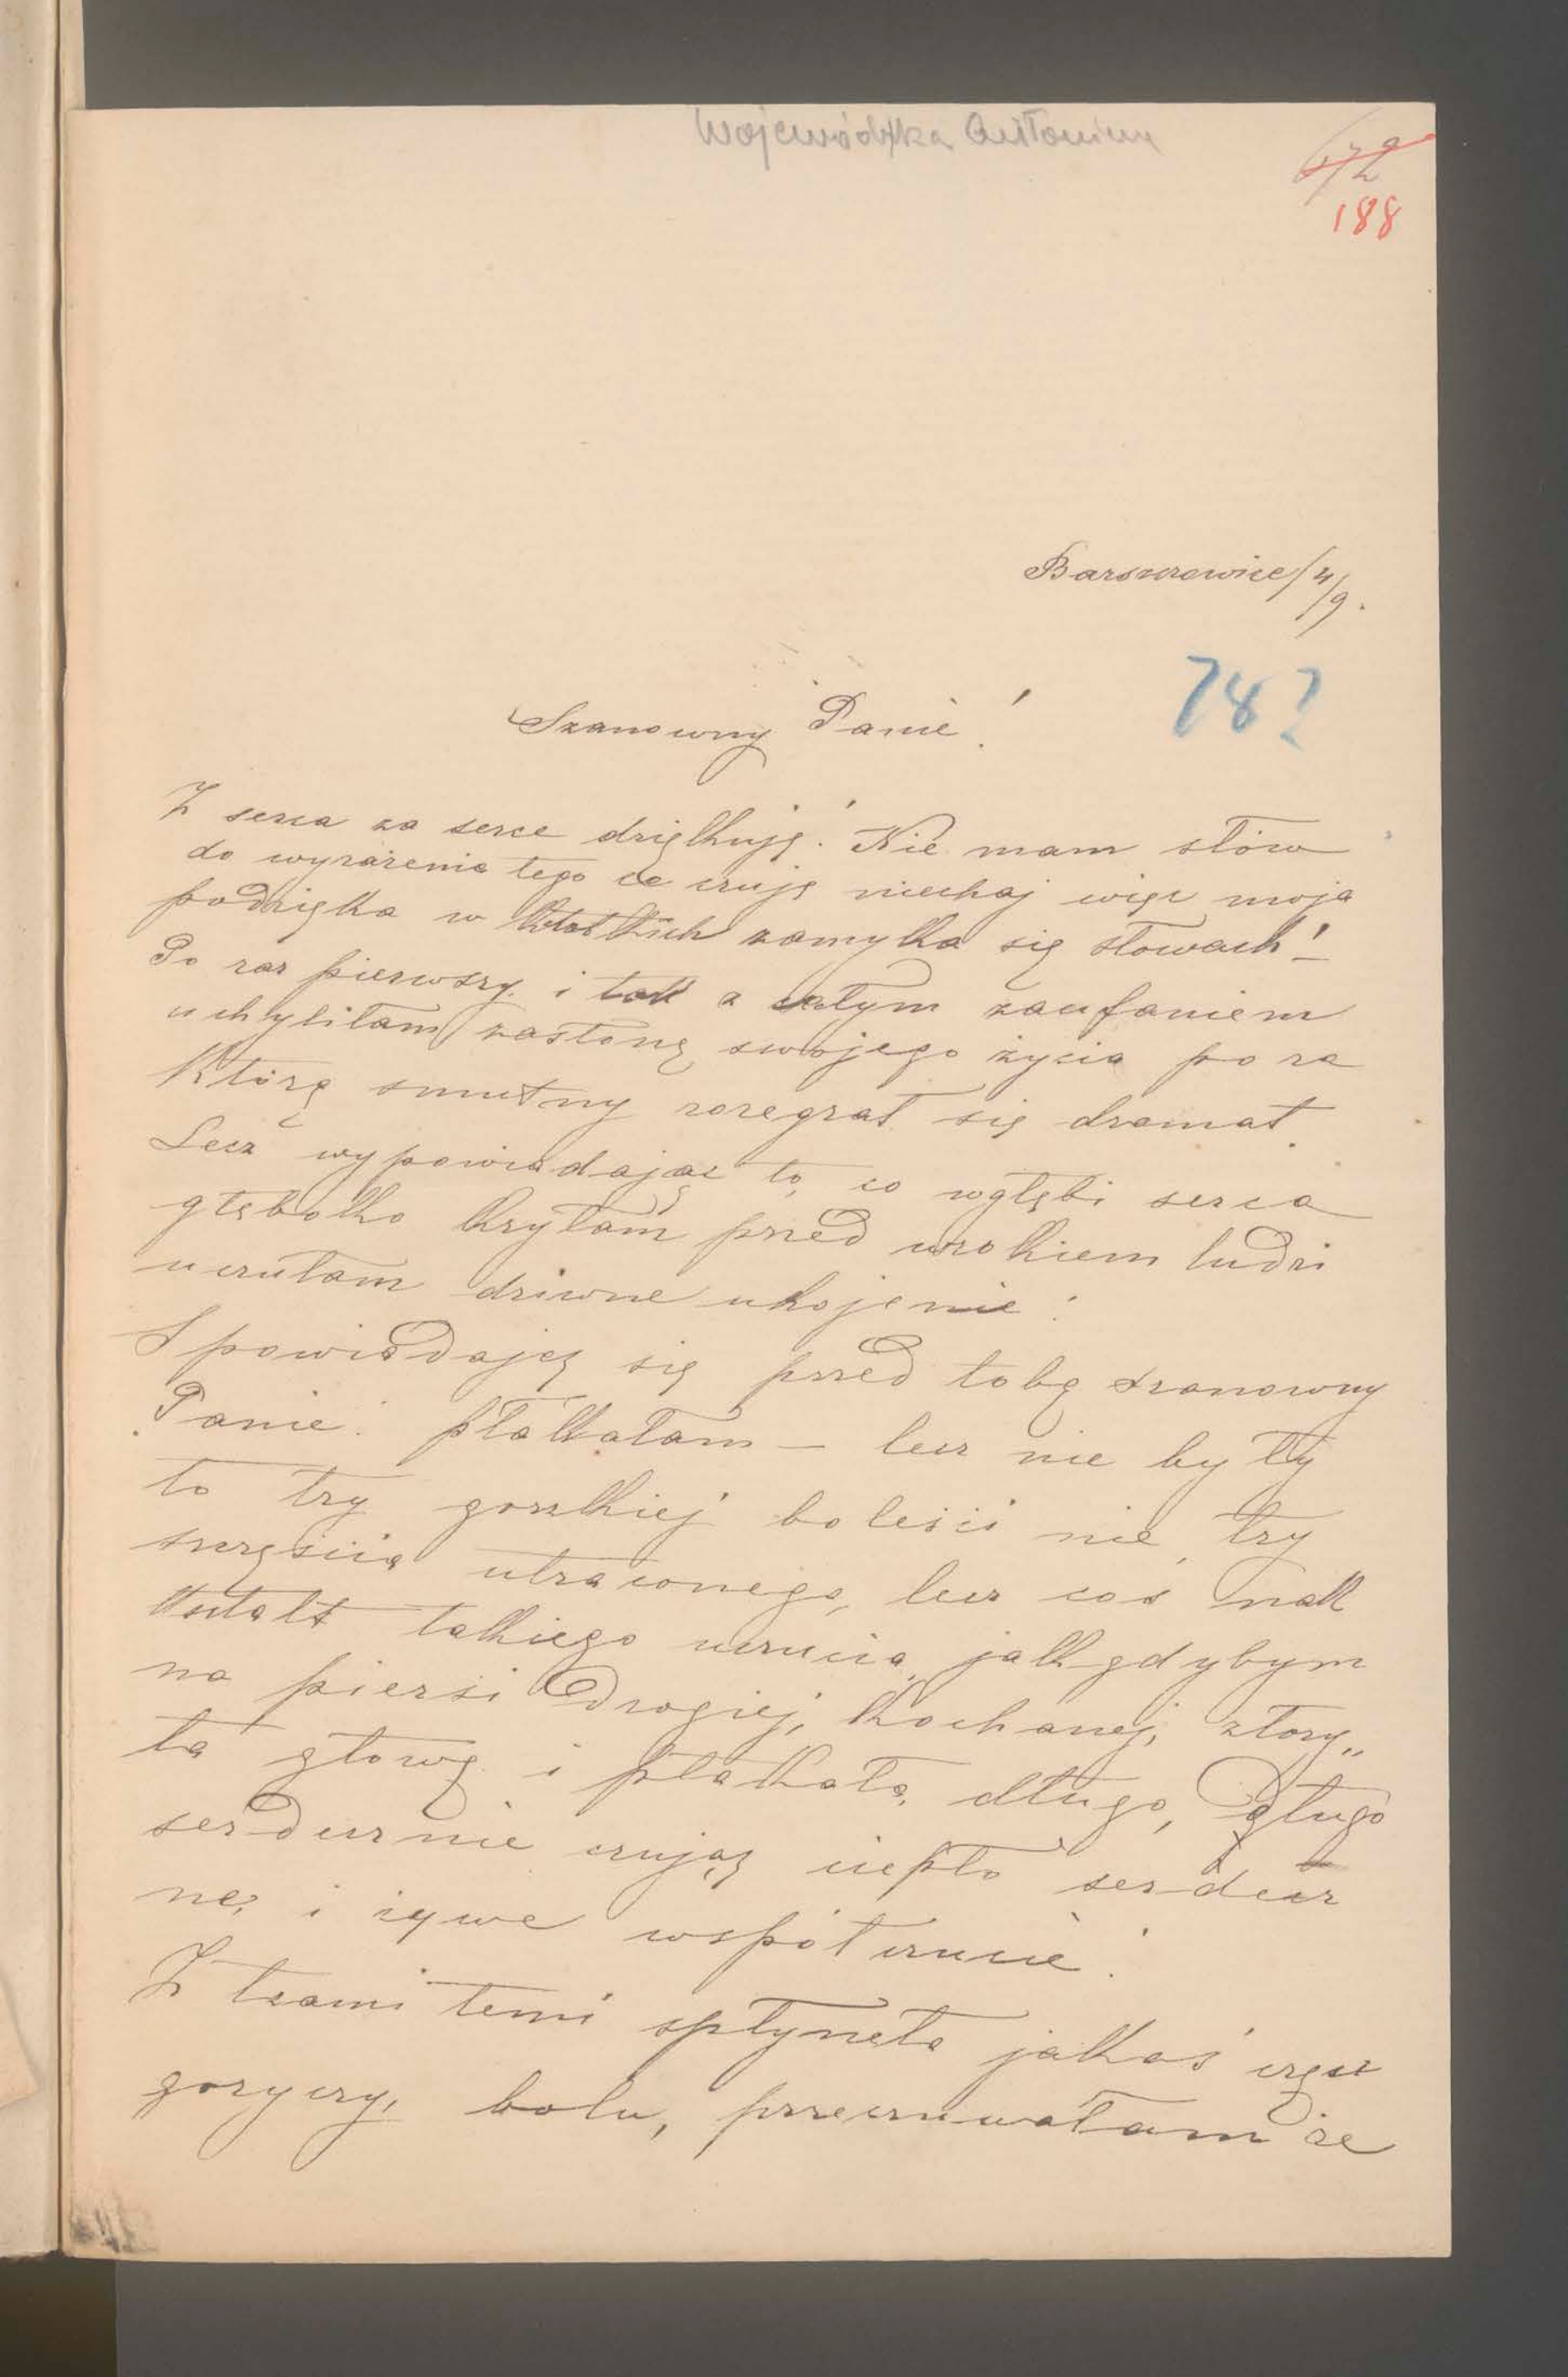 Wojewódzka Antonina
672
188
Barszczowice/ 4/9.
78?
Szanowny Panie!
Z serca za serce dziękuję! Nie mam słów
do wyrażenia tego co czuję niechaj więc moja
podzięka w krótkich zamyka się słowach!
Po raz pierwszy i tak z całym zaufaniem
uchyliłam zasłonę swojego życia po za
którą smutny rozegrał się dramat.
Lecz wypowiadając to, co wgłębi serca
głęboko kryłam przed wzrokiem ludzi
uczułam dziwne ukojenie!
Spowiadając się przed tobą szanowny
Panie! płakałam – lecz nie były
to łzy gorzkiej boleści nie łzy
szczęścia utraconego, lecz coś nak
kształt takiego uczucia jak gdybym
na piersi drogiej, kochanej, złoży„
ła głowę i płakała długo, długo
serdecznie czując ciepło serdecz
ne, i żywe współczucie!
Z łzami temi spłynęła jakaś część
goryczy, bolu, przeczuwałam że